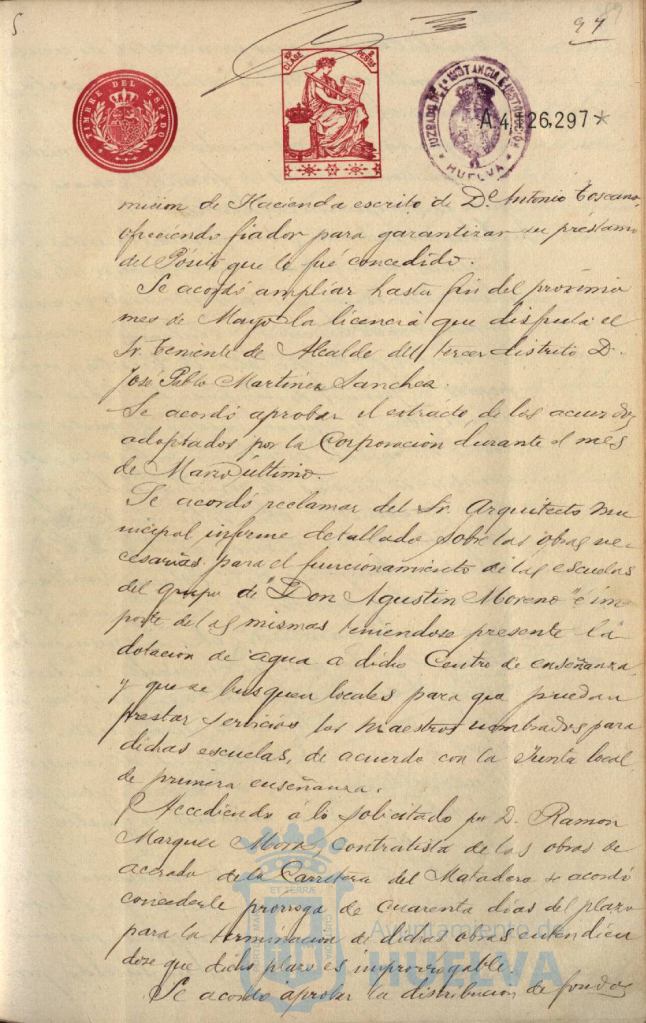 5
89
97
TIMBRE DEL ESTADO
10ª CLASE
2 PESETAS
JUZGADO DE 1ª INSTANCIA E INSTRUCCIÓN
HUELVA
A.4,126,297*
mision de Hacienda escrito de Dⁿ Antonio Toscano,
ofreciendo fiador para garantizar su préstamo
del Pósito que le fué concedido.
Se acordó ampliar hasta fin del próximo
mes de Mayo la licencia que disfruta el
Sr. Teniente de Alcalde del tercer distrito D.
José Pablo Martinez Sanchez.
Se acordó aprobar el extracto de los acuerdos
adoptados por la Corporacion durante el mes
de Marzo último.
Se acordó reclamar del Sr. Arquitecto mu
nicipal informe detallado sobre las obras ne-
cesarias para el funcionamiento de las escuelas
del grupo de "Don Agustin Moreno" é im
porte de las mismas teniendose presente la
dotacion de agua á dicho Centro de enseñanza
y que se busquen locales para que puedan
prestar servicios los maestros nombrados para
dichas escuelas, de acuerdo con la Junta local
de primera enseñanza.
Accediendo á lo solicitado por D. Ramon
Marquez Mora, contratista de las obras de
acerado de la Carretera del Matadero se acordó
concederle prorroga de cuarenta dias del plazo
para la terminacion de dichas obras entendien
dose que dicho plazo es improrrogable.
Se acordo aprobar la distribucion de fondos
Ayuntamiento de
HUELVA